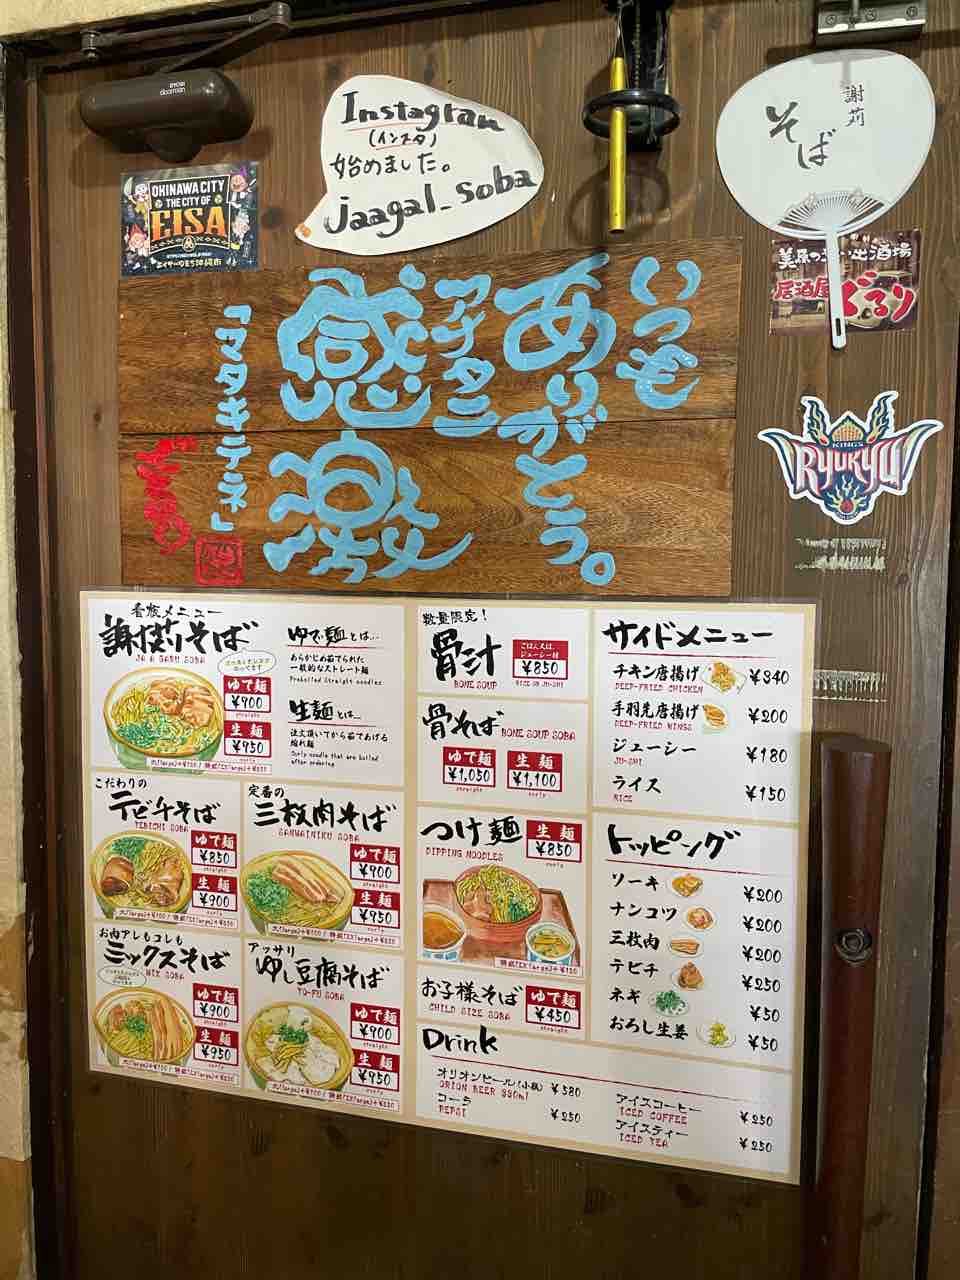 RYOBI
doorman
Instagram
(インスタ)
始めました。
jaagal_soba
謝苅
そば
OKINAWA CITY
THE CITY OF
EISA
エイサーのまち沖縄市
居酒屋ぐるり
KINGS
RYUKYU
いつも
ありがとう。
アナタニ
感激
「マタキテネ」
看板メニュー
謝苅りそば
JAAGARU SOBA
ゆで麺
¥900
straight
生麺
¥950
curly
大(large)+¥100 / 特盛(EXlarge)+¥250
ゆで麺とは…
あらかじめ茹でられた
一般的なストレート麺
Preboiled Straight noodles
生麺とは…
注文頂いてから茹であげる
縮れ麺
Curly noodle that are boiled
after ordering
こだわりの
テビチそば
TEBICHI SOBA
ゆで麺
¥850
straight
生麺
¥900
curly
大(large)+¥100 / 特盛(EXlarge)+¥250
定番の
三枚肉そば
SANMAINIKU SOBA
ゆで麺
¥900
straight
生麺
¥950
curly
大(large)+¥100 / 特盛(EXlarge)+¥250
お肉アレもコレも
ミックスそば
MIX SOBA
ゆで麺
¥900
straight
生麺
¥950
curly
大(large)+¥100 / 特盛(EXlarge)+¥250
アッサリ
ゆし豆腐そば
TO-FU SOBA
ゆで麺
¥900
straight
生麺
¥950
curly
大(large)+¥100 / 特盛(EXlarge)+¥250
数量限定!
骨汁
BONE SOUP
ごはん又は、
ジューシー付
¥850
RICE OR JU-SHI
骨そば
BONE SOUP SOBA
ゆで麺
¥1,050
straight
生麺
¥1,100
curly
つけ麺
DIPPING NOODLES
生麺
¥850
curly
お子様そば
CHILD SIZE SOBA
ゆで麺
¥450
straight
サイドメニュー
チキン唐揚げ ¥340
DEEP-FRIED CHICKEN
手羽先唐揚げ ¥200
DEEP-FRIED WINGS
ジューシー ¥180
JU-SHI
ライス ¥150
RICE
トッピング
ソーキ ¥200
ナンコツ ¥200
三枚肉 ¥200
テビチ ¥250
ネギ ¥50
おろし生姜 ¥50
Drink
オリオンビール(小瓶) ¥580
ORION BEER 330ml
コーラ ¥250
PEPSI
アイスコーヒー ¥250
ICED COFFEE
アイスティー ¥250
ICED TEA